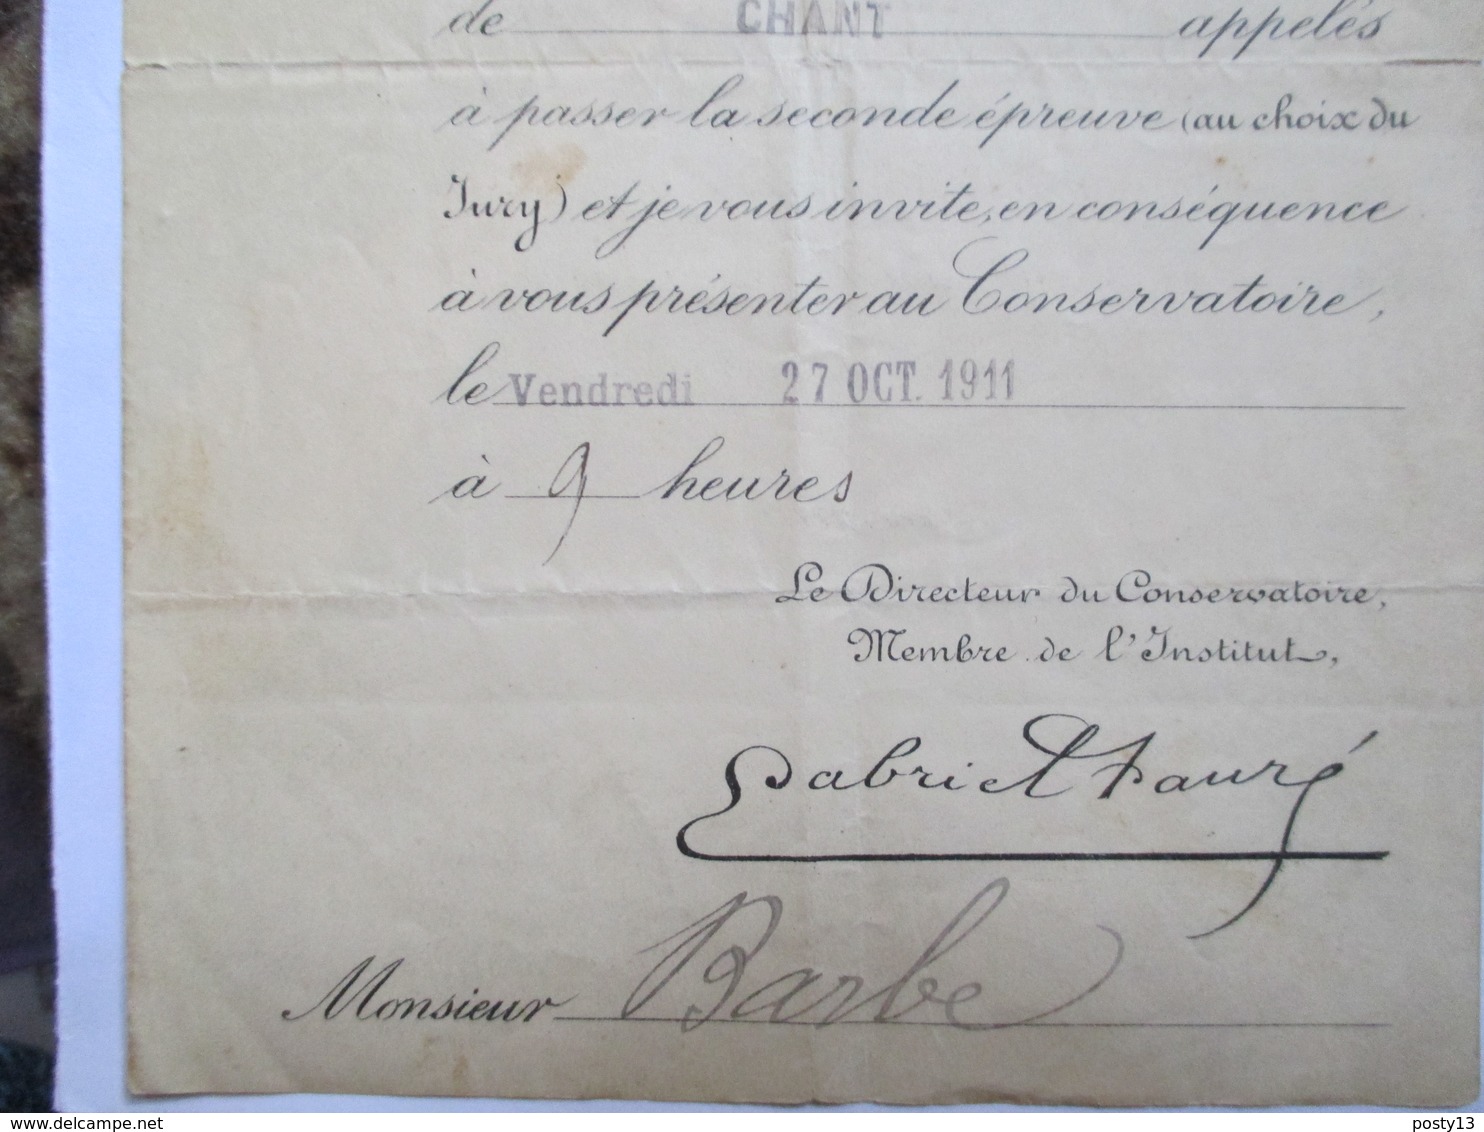 de CHANT appelés
à passer la seconde épreuve (au choix du
Jury) et je vous invite, en conséquence
à vous présenter au Conservatoire,
le Vendredi 27 OCT. 1911
à 9 heures
Le Directeur du Conservatoire,
Membre de l'Institut,
Gabriel Fauré
Monsieur Barbe
posty13